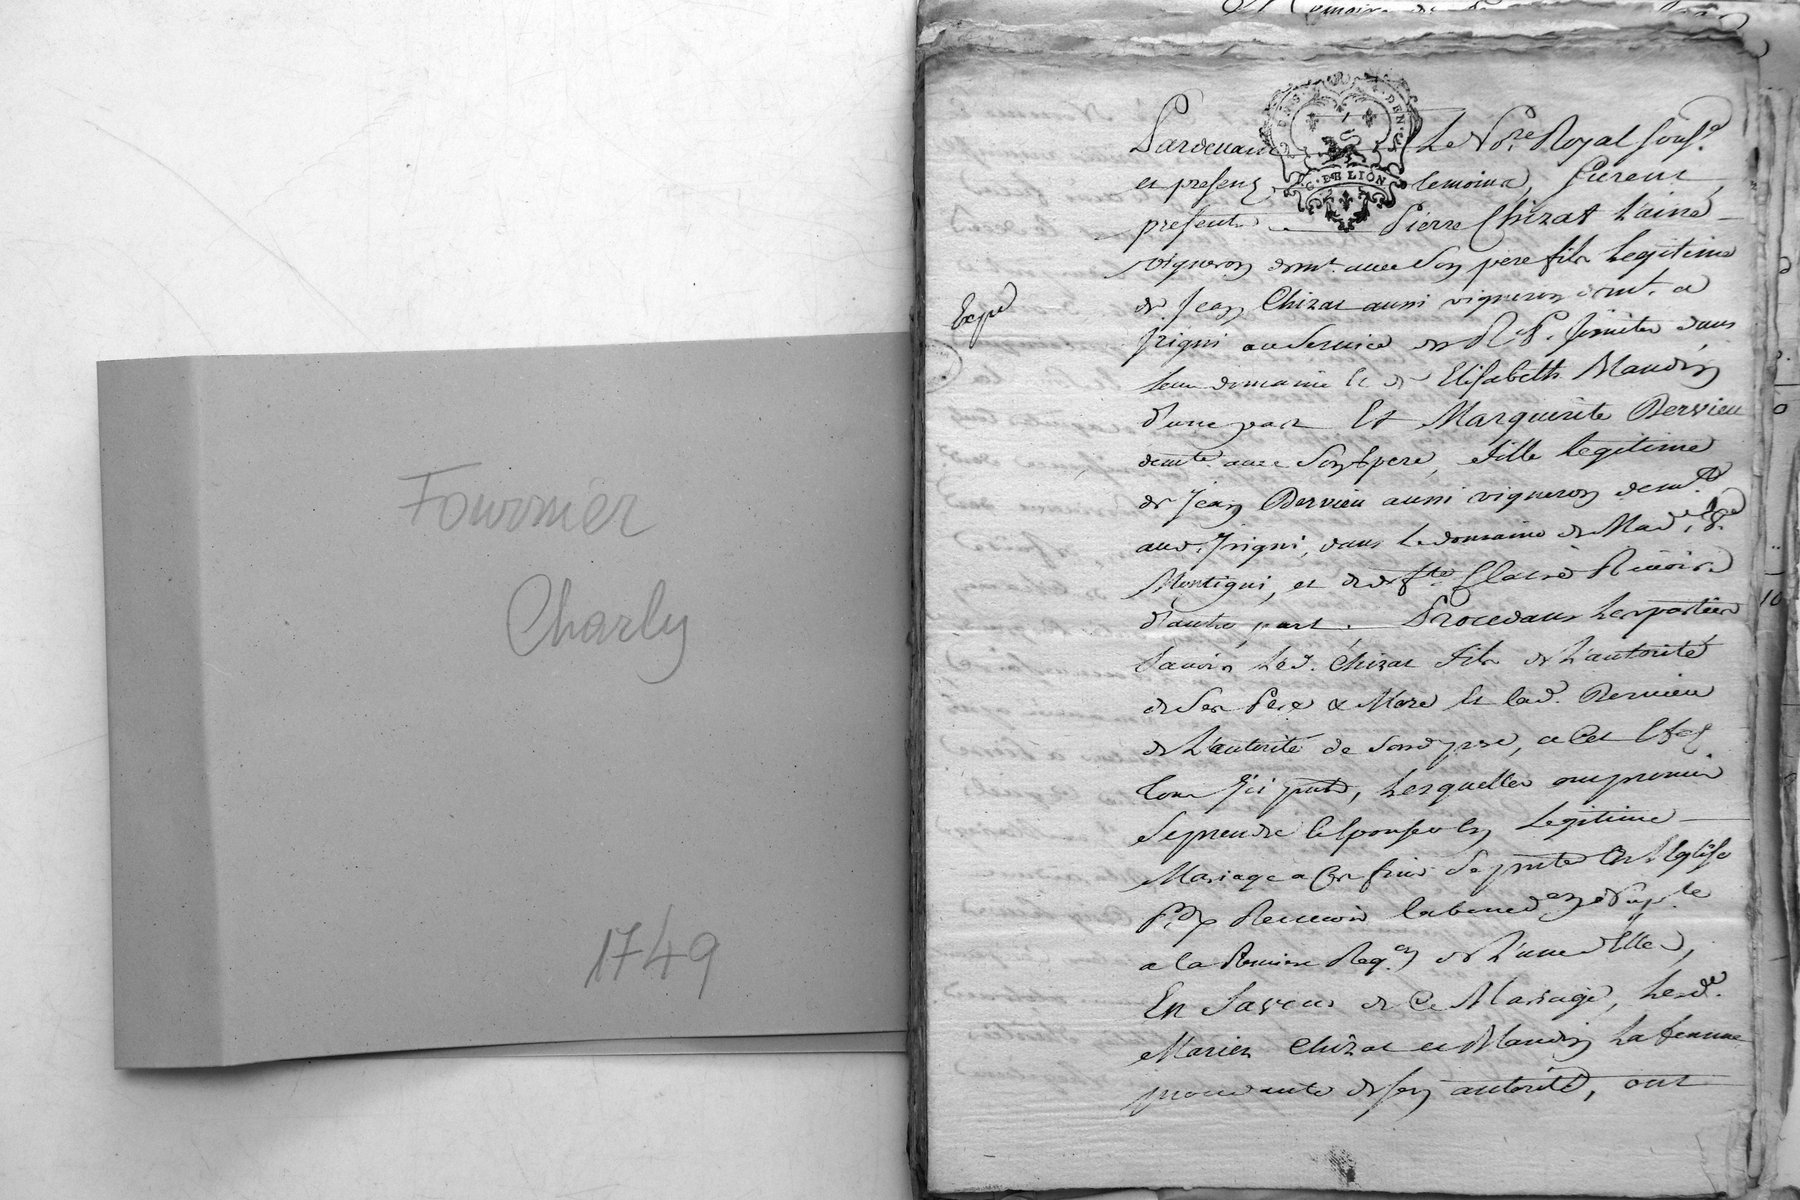 Fournier
Charly
1749
Expé
G. DE LION
Pardevant Le No.re Royal sous.é
et presens temoins, furent
presents Pierre Chizat L'ainé
vigneron dem.t avec son pere fils Legitime
de Jean Chizat aussi vigneron dem.t a
Irigni au service des R. P. Jesuites dans
leur domaine et de Elisabeth Maudin
d'une part Et Marguerite Dervieu
demte. avec son pere, fille legitime
de Jean Dervieu aussi vigneron dem.t
aud. Irigni, dans Le domaine de Mad.e de
Montigni, et de deffte. Claire
d'autre part. Procedans Les parties
savoir Led. Chizat fils de L'autorité
de ses Pere & Mere et lad. Dervieu
de L'autorité de sond. pere, a cet effet
tous ici pnts, Lesquelles ont promis
se prendre et Epouser en Legitime
Mariage a ces fins se pnter en Ste. Eglise
p.r y Recevoir la bened.on nup.le
a la Premiere Req.on de L'une d'Elles,
En faveur de ce Mariage, Lesd.
Mariez Chizat et Maudin La femme
procedante de son autorité, ont